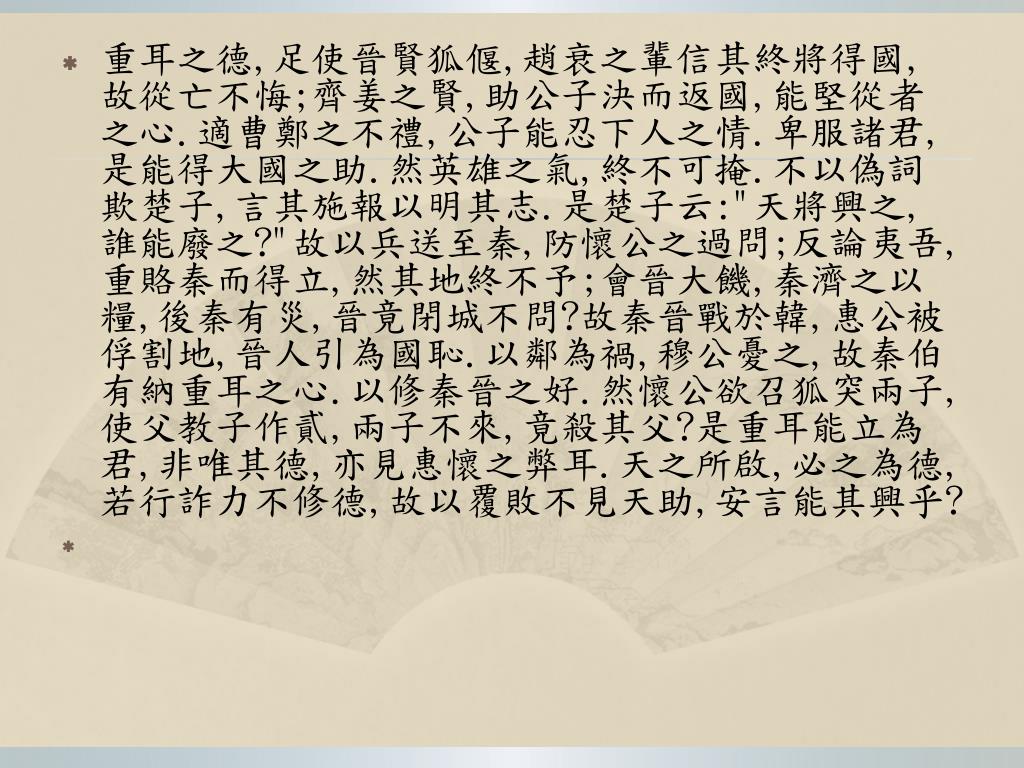 重耳之德,足使晉賢狐偃,趙衰之輩信其終將得國,
故從亡不悔;齊姜之賢,助公子決而返國,能堅從者
之心.適曹鄭之不禮,公子能忍下人之情.卑服諸君,
是能得大國之助.然英雄之氣,終不可掩.不以偽詞
欺楚子,言其施報以明其志.是楚子云:"天將興之,
誰能廢之?"故以兵送至秦,防懷公之過問;反論夷吾,
重賂秦而得立,然其地終不予;會晉大饑,秦濟之以
糧,後秦有災,晉竟閉城不問?故秦晉戰於韓,惠公被
俘割地,晉人引為國恥.以鄰為禍,穆公憂之,故秦伯
有納重耳之心.以修秦晉之好.然懷公欲召狐突兩子,
使父教子作貳,兩子不來,竟殺其父?是重耳能立為
君,非唯其德,亦見惠懷之弊耳.天之所啟,必之為德,
若行詐力不修德,故以覆敗不見天助,安言能其興乎?